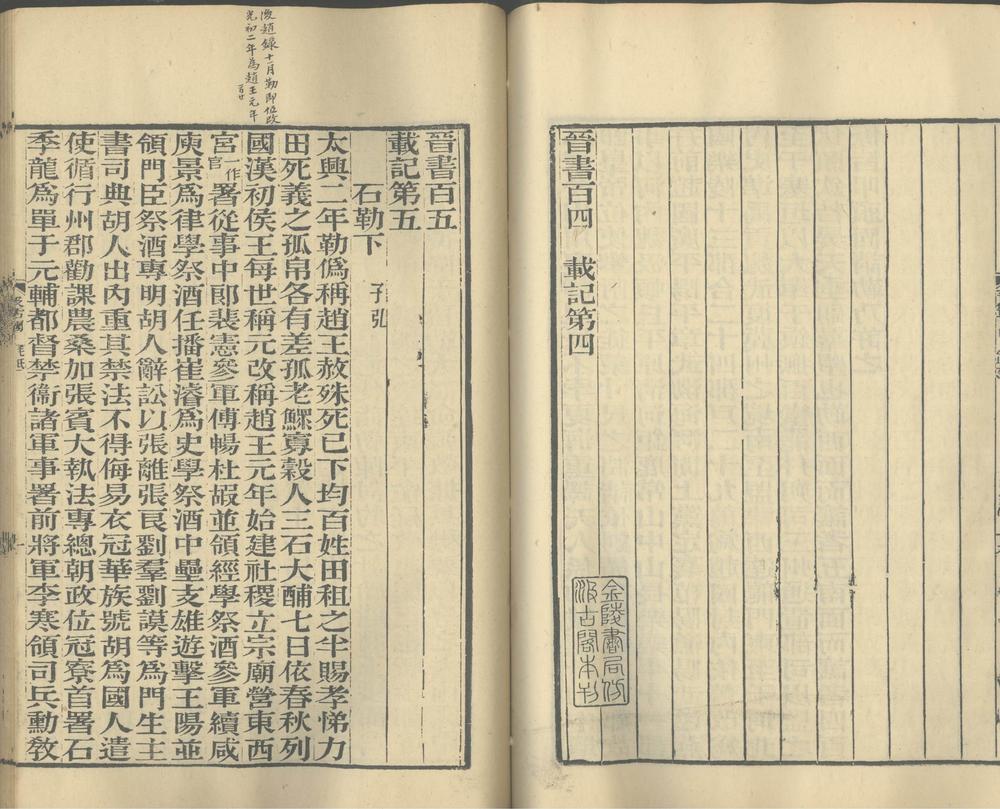 晉書百四　載記第四
金陵書局仿
汲古閣本刊
後趙錄十一月勒即位改
光初二年為趙王元年
晉書百五
載記第五
石勒下　子弘
太興二年勒僞稱趙王赦殊死已下均百姓田租之半賜孝悌力
田死義之孤帛各有差孤老鰥寡穀人三石大酺七日依春秋列
國漢初侯王每世稱元改稱趙王元年始建社稷立宗廟營東西
宮一作官署從事中郎裴憲參軍傅暢杜嘏並領經學祭酒參軍續咸
庾景爲律學祭酒任播崔濬爲史學祭酒中壘支雄遊擊王陽並
領門臣祭酒專明胡人辭訟以張離張良劉羣劉謨等爲門生主
書司典胡人出內重其禁法不得侮易衣冠華族號胡爲國人遣
使循行州郡勸課農桑加張賓大執法專總朝政位冠寮首署石
季龍爲單于元輔都督禁衞諸軍事署前將軍李寒領司兵勳敎